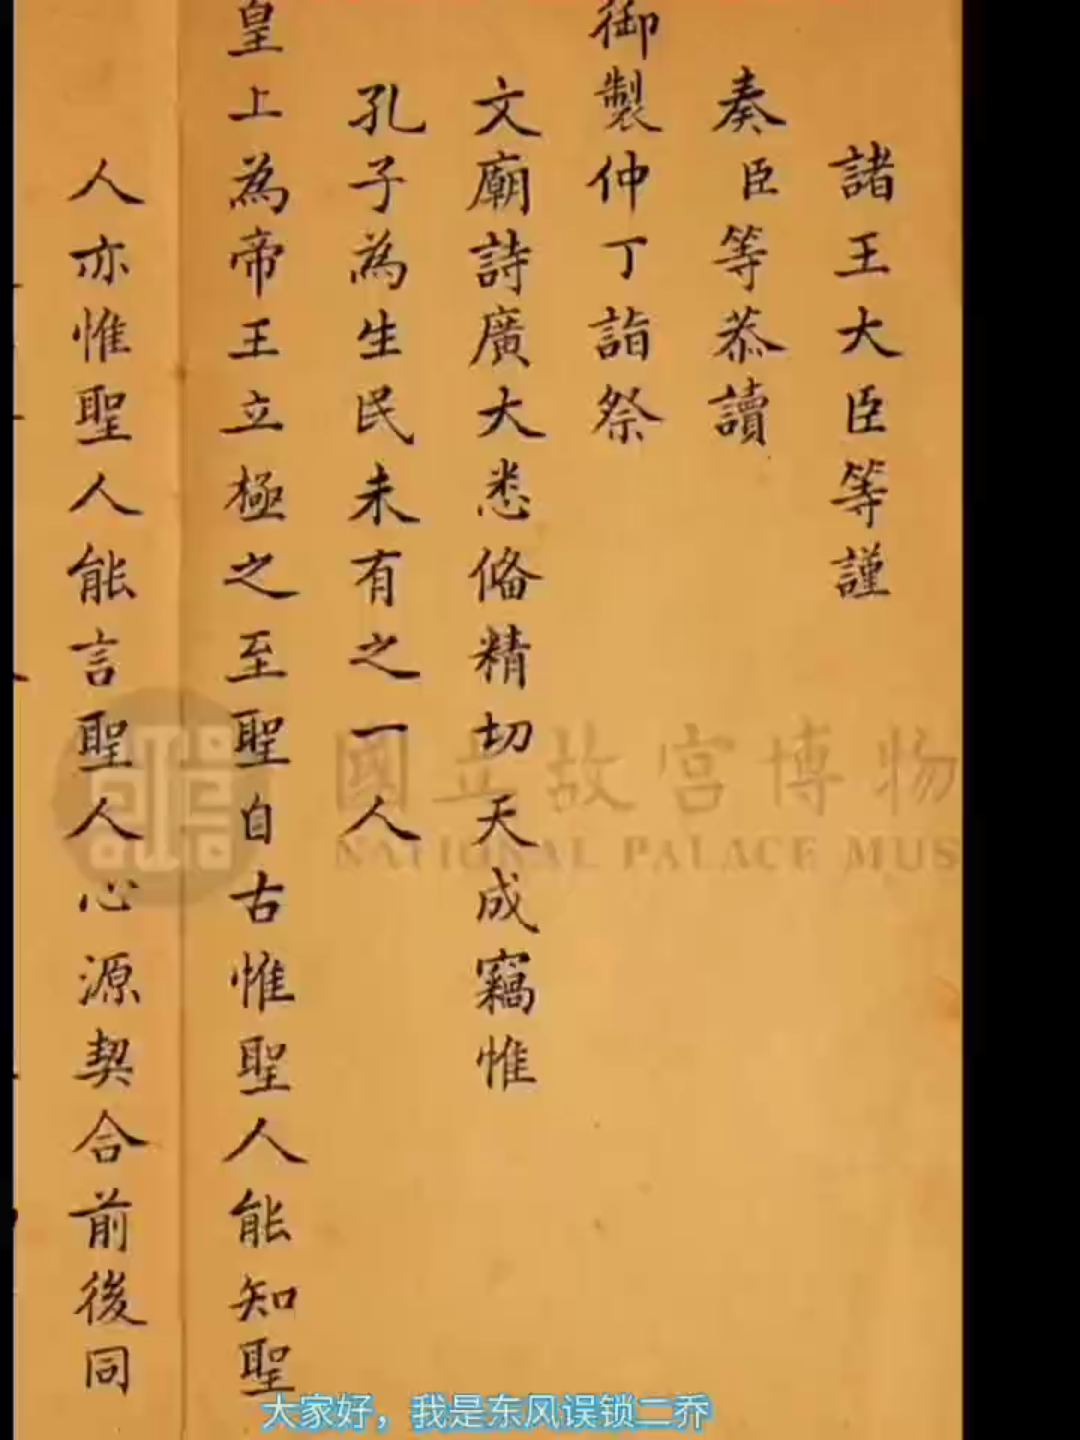 諸王大臣等謹
奏臣等恭讀
御製仲丁詣祭
文廟詩廣大悉俻精切天成竊惟
孔子為生民未有之一人
皇上為帝王立極之至聖自古惟聖人能知聖
人亦惟聖人能言聖人心源契合前後同
國立故宮博物
NATIONAL PALACE MUS
大家好，我是东风误锁二乔